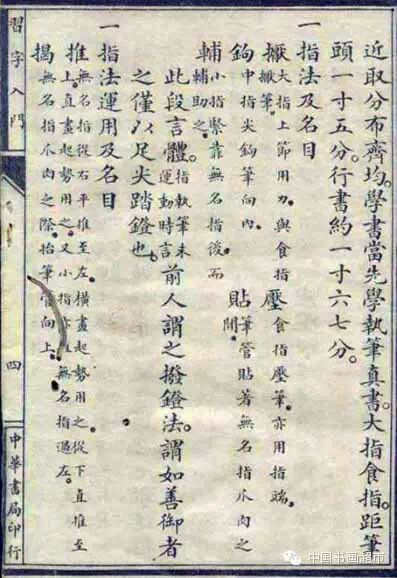 近取分布齊均。學書當先學執筆。真書。大指食指。距筆
頭一寸五分。行書約一寸六七分。
一指法及名目
擫大指上節用力。與食指擫筆。壓食指壓筆。亦用指端。
鉤中指尖鉤筆向內。貼筆管貼著無名指爪肉之間。
輔小指緊靠無名指後。而輔助之。
此段言體。指執筆未運動時言前人謂之撥鐙法。謂如善御者
之僅以足尖踏鐙也。
一指法運用及名目
推無名指從右平推至左。橫畫起勢用之。從下直推至上。直畫起勢用之。又小指 無名指過左。
揭無名指爪肉之際。抬筆管向上。
習字入門
四
中華書局印行
中国书画超市